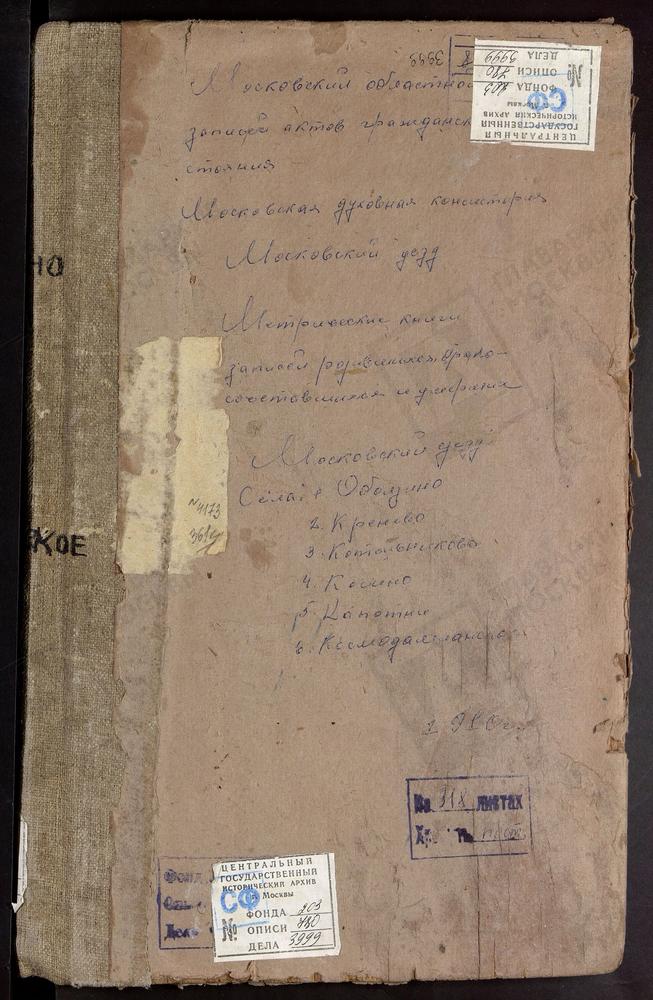 3999
Московский областной
записей актов гражданск
стояния
Московская духовная консистория
Московский уезд
Метрические книги
записей родившихся, брако-
сочетавшихся и умерших
Московский уезд
Села: 1 Оболдино
2. Кренево
3. Котельниково
4. Косино
5. Капотни
6. Космодамианско
НО
КОЕ
№4173
На 318 листах
ЦЕНТРАЛЬНЫЙ
ГОСУДАРСТВЕННЫЙ
ИСТОРИЧЕСКИЙ АРХИВ
г. Москвы
СФ
ФОНДА 203
№ ОПИСИ 780
ДЕЛА 3999
ЦЕНТРАЛЬНЫЙ
ГОСУДАРСТВЕННЫЙ
ИСТОРИЧЕСКИЙ АРХИВ
г. Москвы
СФ
ФОНДА 203
№ ОПИСИ 780
ДЕЛА 3999